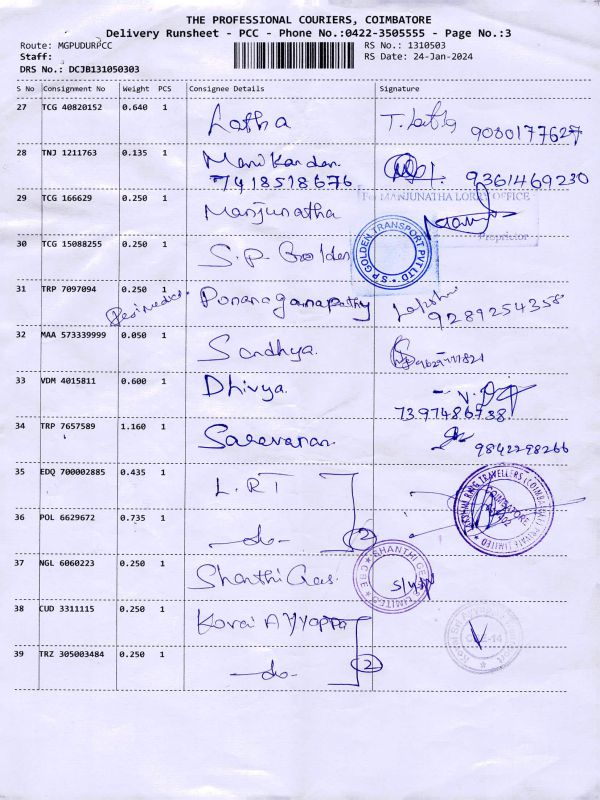 THE PROFESSIONAL COURIERS, COIMBATORE
Delivery Runsheet - PCC - Phone No.:0422-3505555 - Page No.:3
Route: MGPUDURPCC RS No.: 1310503
Staff: RS Date: 24-Jan-2024
DRS No.: DCJB131050303
S No Consignment No Weight PCS Consignee Details Signature
27 TCG 40820152 0.640 1 Latha T. Latha 9080177627
28 TNJ 1211763 0.135 1 Manikandan. 9361469230
7418518676
29 TCG 166629 0.250 1 Manjunatha
For MANJUNATHA LORRY OFFICE
Proprietor
30 TCG 15088255 0.250 1 S.P. Golden
S P GOLDEN TRANSPORT PVT LTD
31 TRP 7097094 0.250 1 Ponnaganapathy
9289254358
32 MAA 573339999 0.050 1 Sandhya.
33 VDM 4015811 0.600 1 Dhivya.
7397486738
34 TRP 7657589 1.160 1 Saravanan. 9842298266
35 EDQ 700002885 0.435 1 L.RT
LAKSHMI RING TRAVELLERS (COIMBATORE) PRIVATE LIMITED
COIMBATORE
36 POL 6629672 0.735 1 -do- 2
37 NGL 6060223 0.250 1 Shanthi Gas.
SHANTHI GEARS LIMITED CBE
38 CUD 3311115 0.250 1 Kovai Ayyappa
39 TRZ 305003484 0.250 1 -do- 2